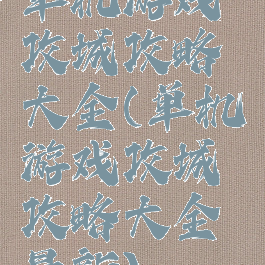 单机游戏
攻城攻略
大全(单机
游戏攻城
攻略大全
最新)